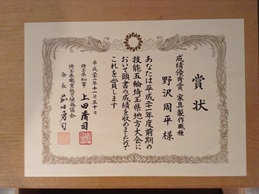 賞状
成績優秀賞 家具製作職種
野沢周平 様
あなたは平成二十一年度前期の
技能五輪埼玉県地方大会に
おいて頭書の成績を収めましたので
これを賞します
平成二十一年十一月五日
埼玉県知事 上田清司
埼玉県職業能力開発協会
会長